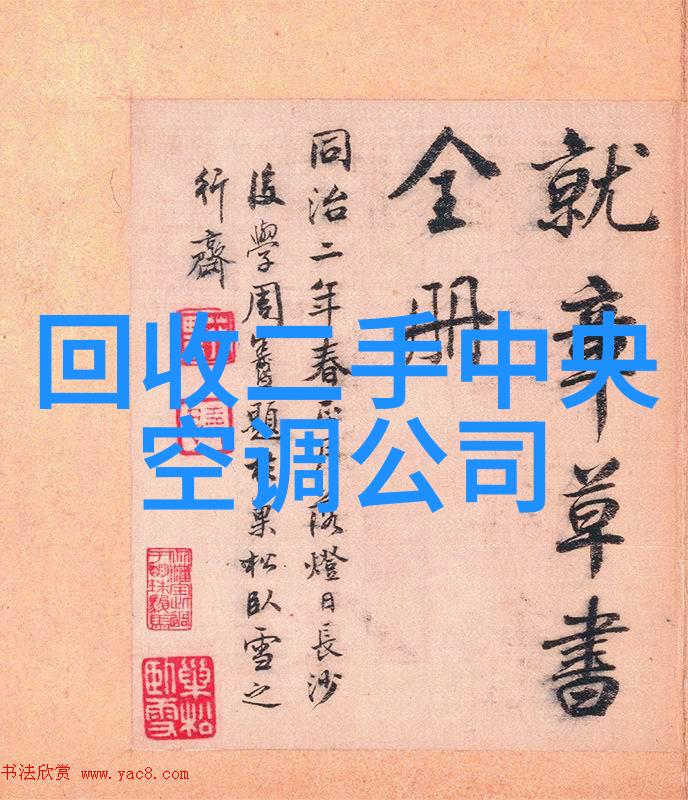 回收二手中央
空调公司
就章草書
全册
同治二年春正月落燈日長沙
後學周題於巢松臥雪之
行齋
巢松臥雪
书法欣赏 www.yac8.com